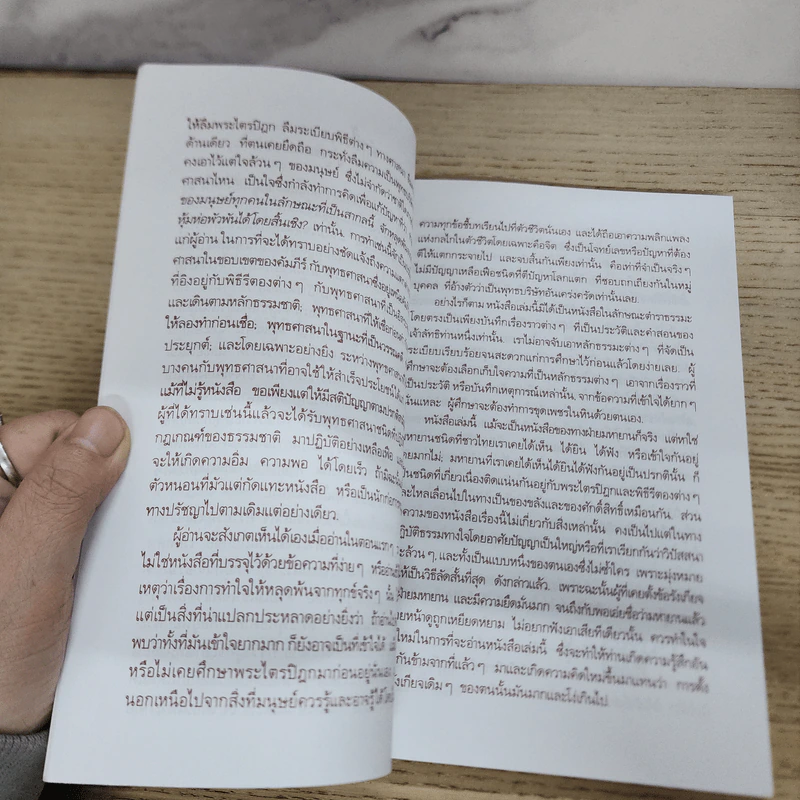 ให้ลืมพระไตรปิฎก ลืมระเบียบพิธีต่างๆ ทางศาสนา
ด้านเดียว ที่ตนเคยยึดถือ กระทั่งลืมความเป็นพุทธ
คงเอาไว้แต่ใจล้วนๆ ของมนุษย์ ซึ่งไม่จำกัดว่า
ศาสนาไหน เป็นใจซึ่งกำลังทำการคิดเพื่อแก้ปัญหา
ของมนุษย์ทุกคนในลักษณะที่เป็นสากลนี้ จักหลุด
หุ้มห่อพัวพันได้โดยสิ้นเชิง? เท่านั้น. การทำเช่นนี้
แก่ผู้อ่าน ในการที่จะได้ทราบอย่างชัดแจ้งถึงความ
ศาสนาในขอบเขตของคัมภีร์ กับพุทธศาสนาซึ่งอยู่เหนือ
ที่อิงอยู่กับพิธีรีตองต่างๆ กับพุทธศาสนาที่เป็นอิสระ
และเดินตามหลักธรรมชาติ; พุทธศาสนาที่ให้เชื่อก่อน
ให้ลองทำก่อนเชื่อ; พุทธศาสนาในฐานะที่เป็นวรรณคดี
ประยุกต์; และโดยเฉพาะอย่างยิ่ง ระหว่างพุทธศาสนา
บางคนกับพุทธศาสนาที่อาจใช้ให้สำเร็จประโยชน์ได้
แม้ที่ไม่รู้หนังสือ ขอเพียงแต่ให้มีสติปัญญาตามปรกติ
ผู้ที่ได้ทราบเช่นนี้แล้วจะได้รับพุทธศาสนาชนิดที่
กฎเกณฑ์ของธรรมชาติ มาปฏิบัติอย่างเหลือเฟือ
จะให้เกิดความอิ่ม ความพอ ได้โดยเร็ว ถ้ามิฉะนั้น
ตัวหนอนที่มัวแต่กัดแทะหนังสือ หรือเป็นนักก่อการ
ทางปรัชญาไปตามเดิมแต่อย่างเดียว.
ผู้อ่านจะสังเกตเห็นได้เองเมื่ออ่านในตอนแรกๆ
ไม่ใช่หนังสือที่บรรจุไว้ด้วยข้อความที่ง่ายๆ หรือ
เหตุว่าเรื่องการทำใจให้หลุดพ้นจากทุกข์จริงๆ นั้น
แต่เป็นสิ่งที่น่าแปลกประหลาดอย่างยิ่งว่า ถ้า
พบว่าทั้งที่มันเข้าใจยากมาก ก็ยังอาจเป็นที่เข้าใจได้
หรือไม่เคยศึกษาพระไตรปิฎกมาก่อนอยู่นั่นเอง
นอกเหนือไปจากสิ่งที่มนุษย์ควรรู้และอาจรู้ได้โดย
ความทุกข์อขึ้นบทเรียนไปที่ตัวชีวิตนั่นเอง และได้ถือเอาความพลิกแพลง
แห่งกลไกในตัวชีวิตโดยเฉพาะคือจิต ซึ่งเป็นโจทย์เลขหรือปัญหาที่ต้อง
ตีให้แตกกระจายไป และจบสิ้นกันเพียงเท่านั้น คือเท่าที่จำเป็นจริงๆ
ไม่มีปัญญาเหลือเฟือชนิดที่ตีปัญหาโลกแตก ที่ชอบถกเถียงกันในหมู่
บุคคล ที่อ้างตัวว่าเป็นพุทธบริษัทอันเคร่งครัดเท่านั้นเลย.
อย่างไรก็ตาม หนังสือเล่มนี้มิได้เป็นหนังสือในลักษณะตำราธรรมะ
โดยตรงเป็นเพียงบันทึกเรื่องราวต่างๆ ที่เป็นประวัติและคำสอนของ
ท่านหนึ่งเท่านั้น เราไม่อาจจับเอาหลักธรรมะต่างๆ ที่จัดเป็น
ระเบียบเรียบร้อยจนสะดวกแก่การศึกษาไว้ก่อนแล้วโดยง่ายเลย. ผู้
ศึกษาจะต้องเลือกเก็บใจความที่เป็นหลักธรรมต่างๆ เอาจากเรื่องราวที่
เป็นประวัติ หรือบันทึกเหตุการณ์เหล่านั้น, จากข้อความที่เข้าใจได้ยากๆ
นั่นแหละ ผู้ศึกษาจะต้องทำการขุดเพชรในหินด้วยตนเอง.
หนังสือเล่มนี้ แม้จะเป็นหนังสือของทางฝ่ายมหายานก็จริง แต่หาใช่
มหายานชนิดที่ชาวไทยเราเคยได้เห็น ได้ยิน ได้ฟัง หรือเข้าใจกันอยู่
มากไม่; มหายานที่เราเคยได้เห็นได้ยินได้ฟังกันอยู่เป็นปรกตินั้น ก็
ชนิดที่เกี่ยวเนื่องติดแน่นกันอยู่กับพระไตรปิฎกและพิธีรีตองต่างๆ
ไหลเลื่อนไปในทางเป็นของขลังและของศักดิ์สิทธิ์เหมือนกัน. ส่วน
ความของหนังสือเรื่องนี้ไม่เกี่ยวกับสิ่งเหล่านั้น คงเป็นไปแต่ในทาง
ปฏิบัติธรรมทางใจโดยอาศัยปัญญาเป็นใหญ่หรือที่เราเรียกกันว่าวิปัสสนา
ล้วนๆ, และทั้งเป็นแบบหนึ่งของตนเองซึ่งไม่ซ้ำใคร เพราะมุ่งหมาย
ให้เป็นวิธีลัดสั้นที่สุด ดังกล่าวแล้ว. เพราะฉะนั้นผู้ที่เคยตั้งข้อรังเกียจ
ฝ่ายมหายาน และมีความยึดมั่นมาก จนถึงกับพอเอ่ยชื่อว่ามหายานแล้ว
หน้าดูถูกเหยียดหยาม ไม่อยากฟังเอาเสียทีเดียวนั้น ควรทำในใจ
ใหม่ในการที่จะอ่านหนังสือเล่มนี้ ซึ่งจะทำให้ท่านเกิดความรู้สึกอัน
ข้ามจากที่แล้วๆ มาและเกิดความคิดใหม่ขึ้นมาแทนว่า การตั้ง
เดิมๆ ของตนนั้นมันมากและโง่เกินไป.